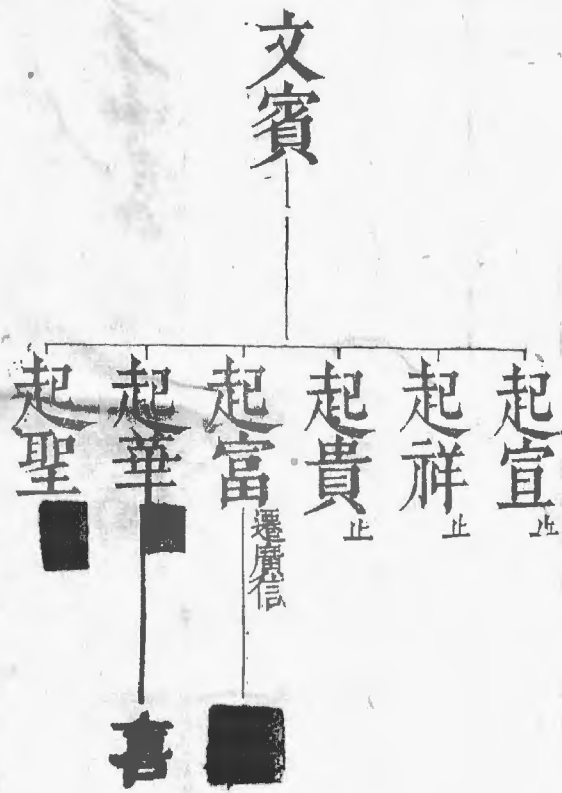 文賓
起宣
止
起祥
止
起貴
止
起富
遷廣信
起華
起聖
喜